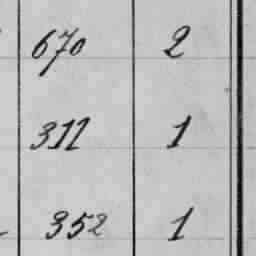 670 2
311 1
352 1